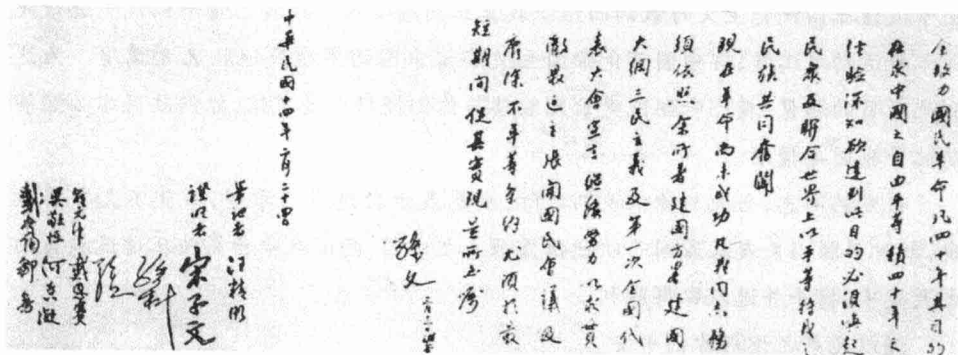 余致力國民革命凡四十年其目的
在求中國之自由平等積四十年之
經驗深知欲達到此目的必須喚起
民衆及聯合世界上以平等待我之
民族共同奮鬥
現在革命尚未成功凡我同志務
須依照余所著建國方畧建國
大綱三民主義及第一次全國代
表大會宣言繼續努力以求貫
澈最近主張開國民會議及
廢除不平等條約尤須於最
短期間促其實現是所至囑
孫文 二月二十四日
中華民國十四年二月二十四日
筆記者 汪精衞
證明者 宋子文
孫科
邵元沖 戴恩賽
吳敬恆 何香凝
戴季陶 鄒魯